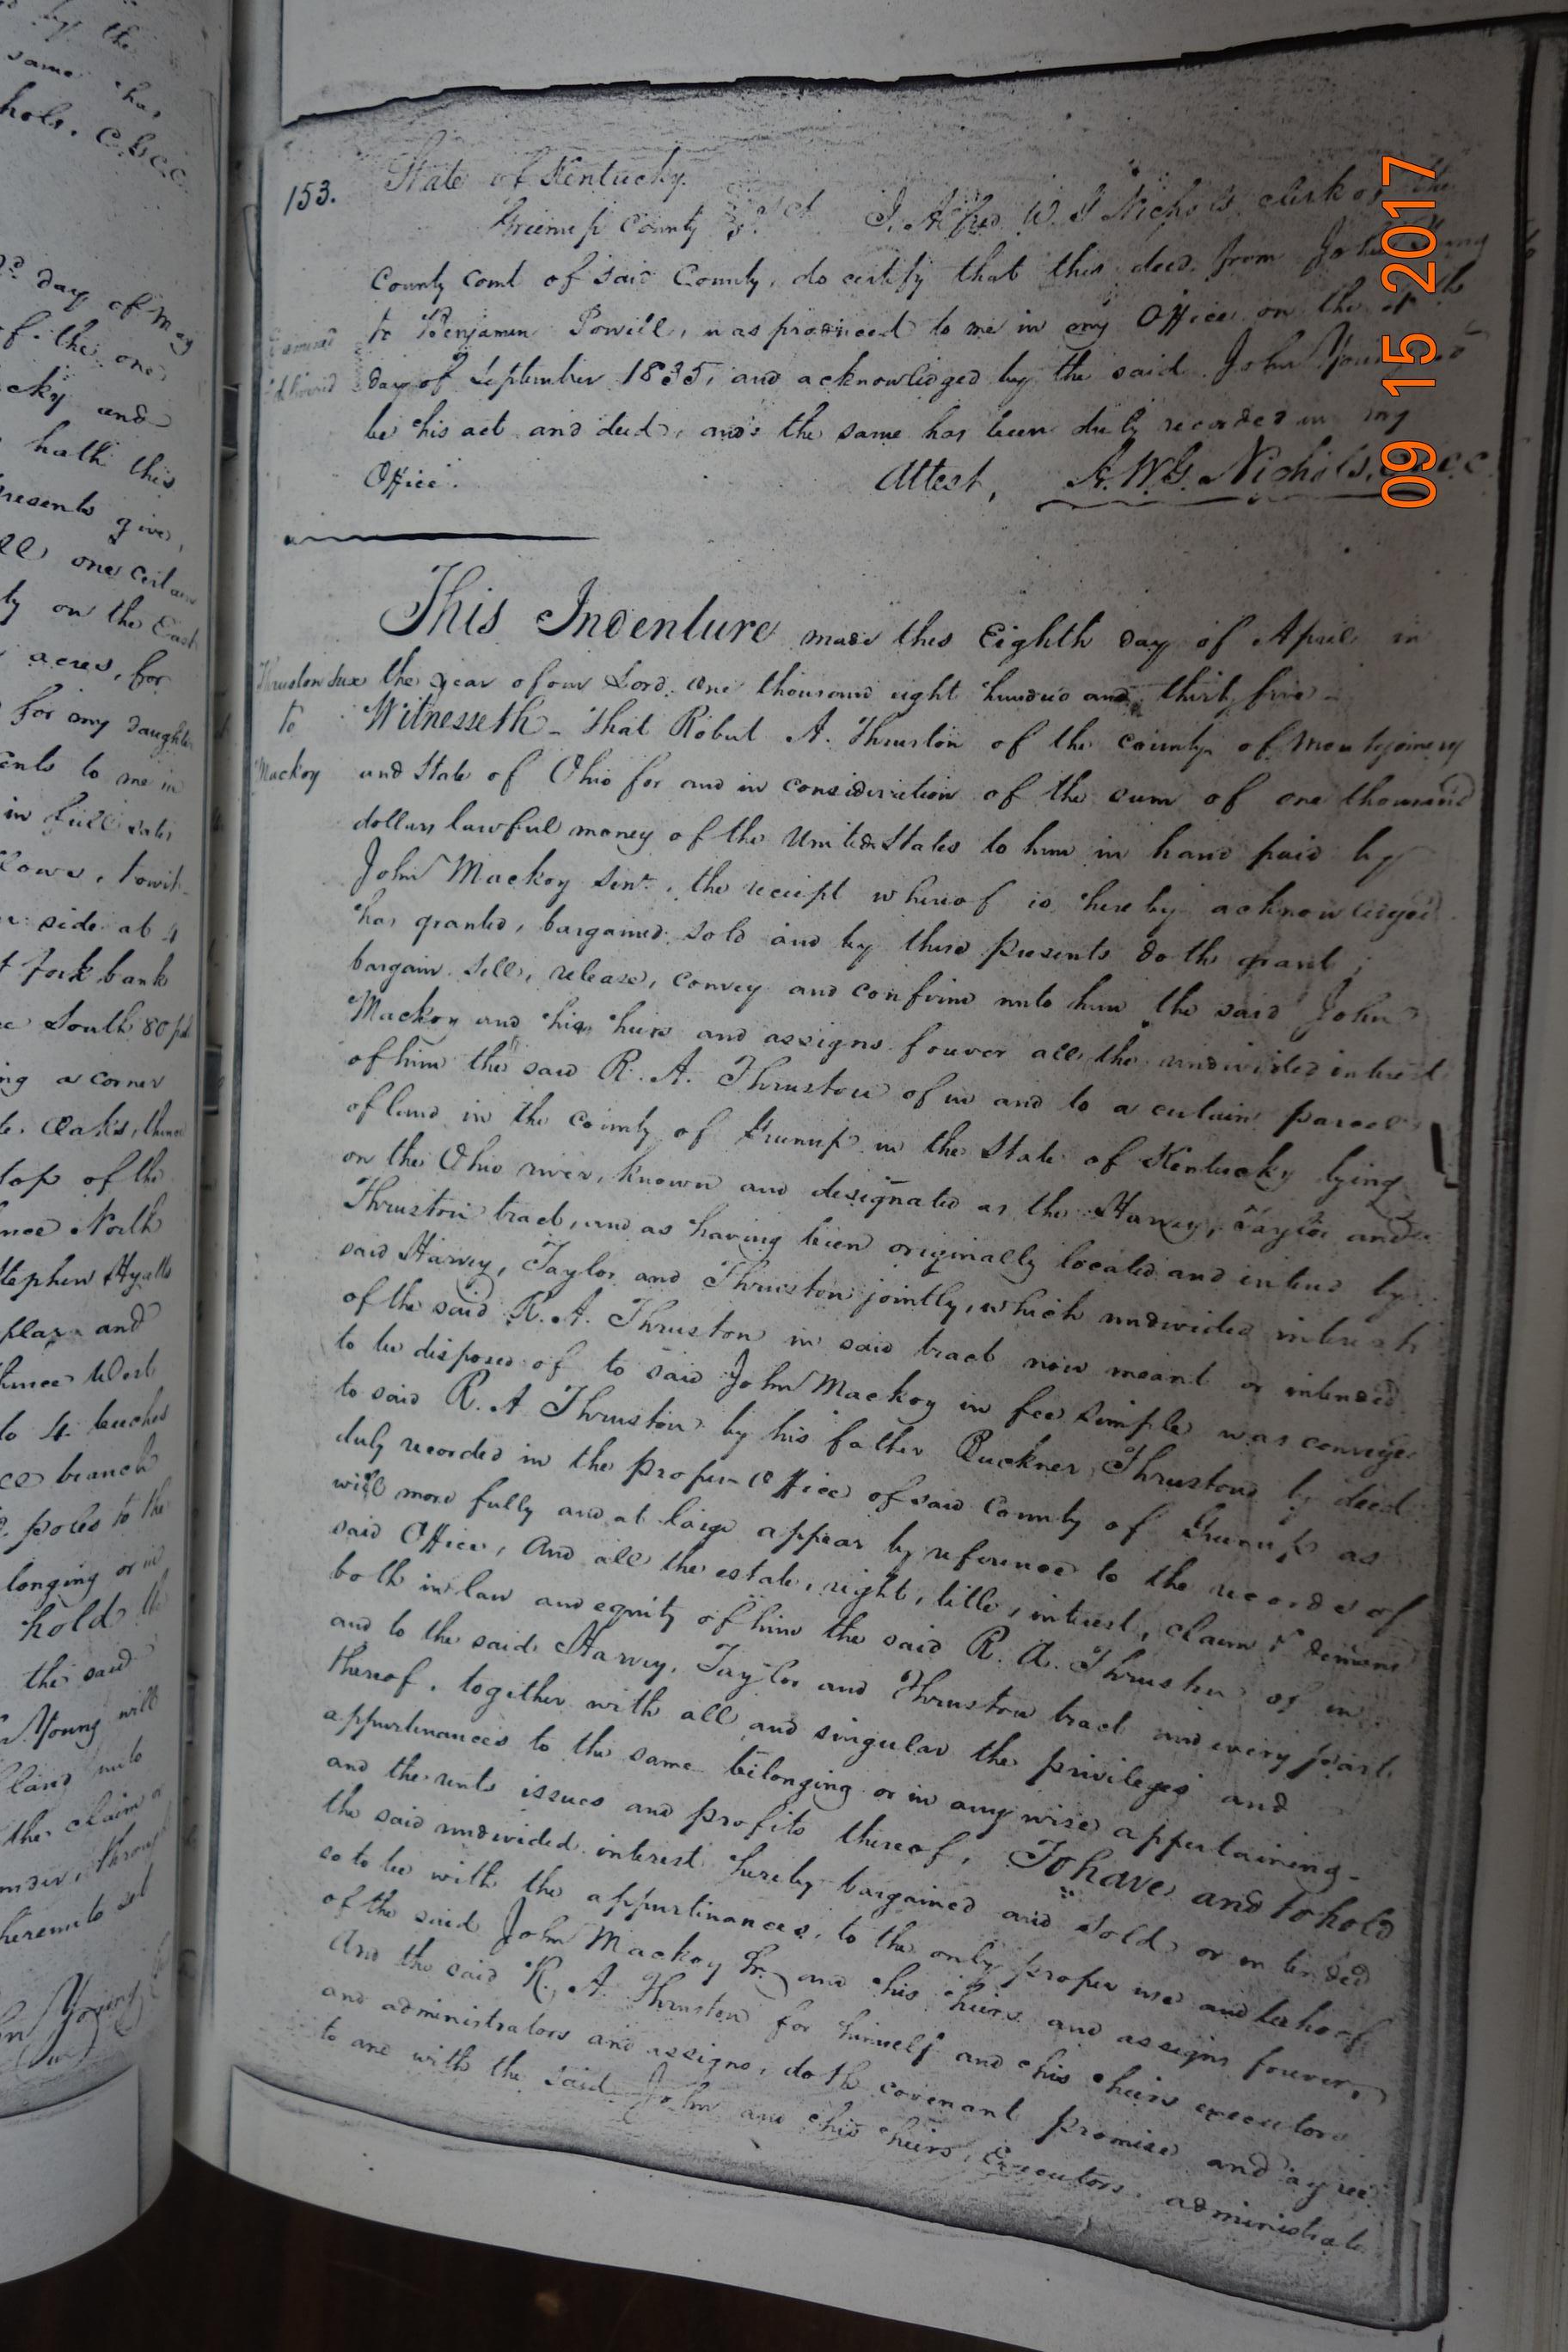 by the
same has
hols. C.G.C.C.
day of May
of the one
cky and
hath this
resents give,
one certain
ly on the East
acres, for
for my daughter
ents to me in
in full satis
lows, towit
side at 4
t fork bank
South 80 po
ng a corner
te. Oaks, thence
top of the
nce North
Stephen Hyatts
plax and
thence West
to 4 beeches
ce branch
poles to the
longing or in
hold the
the said
Young will
land unto
the claim or
nder, throu
hereunto set
hn Young
153. State of Kentucky.
Greenup County Sct. I, Alfred W. G Nichols clerk of the
County Court of said County, do certify that this deed from John Young
to Benjamin Powell, was produced to me in my Office on the
Examined
day of September 1835, and acknowledged by the said John Young to
delivered
be his act and deed, and the same has been duly recorded in my
Office. Attest, A. W. G. Nichols, C.G.C.C.
09 15 2017
This Indenture made this Eighth day of April in
Thruston Dux the year of our Lord one thousand eight hundred and thirty five -
to Witnesseth - That Robert A. Thruston of the county of Montgomery
Mackoy and State of Ohio for and in consideration of the sum of one thousand
dollars lawful money of the United States to him in hand paid by
John Mackoy Senr., the receipt whereof is hereby acknowledged
has granted, bargained sold and by these presents doth grant,
bargain sell, release, convey and confirm unto him the said John
Mackoy and his heirs and assigns forever all the undivided interest
of him the said R. A. Thruston of in and to a certain parcel
of land in the county of Greenup in the State of Kentucky lying
on the Ohio river, known and designated as the Harvey, Taylor and
Thruston tract, and as having been originally located and entered by
said Harvey, Taylor and Thruston jointly, which undivided interest
of the said R. A. Thruston in said tract now meant or intended
to be disposed of to said John Mackoy in fee simple was conveyed
to said R. A Thruston by his father Buckner Thruston by deed
duly recorded in the proper Office of said County of Greenup as
will more fully and at large appear by reference to the records of
said Office, And all the estate, right, title, interest, claim & demand
both in law and equity of him the said R. A. Thruston of in
and to the said Harvey, Taylor and Thruston tract and every part
thereof, together with all and singular the privileges and
appurtenances to the same belonging or in any wise appertaining -
and the rents issues and profits thereof, To have and to hold
the said undivided interest hereby bargained and sold or intended
so to be with the appurtinances, to the only proper use and behoof
of the said John Mackoy Sr. and his heirs and assigns forever,
And the said R. A. Thruston for himself and his heirs executors
and administrators and assigns, doth covenant promise and agree
to and with the said John and his heirs, Executors, administrato